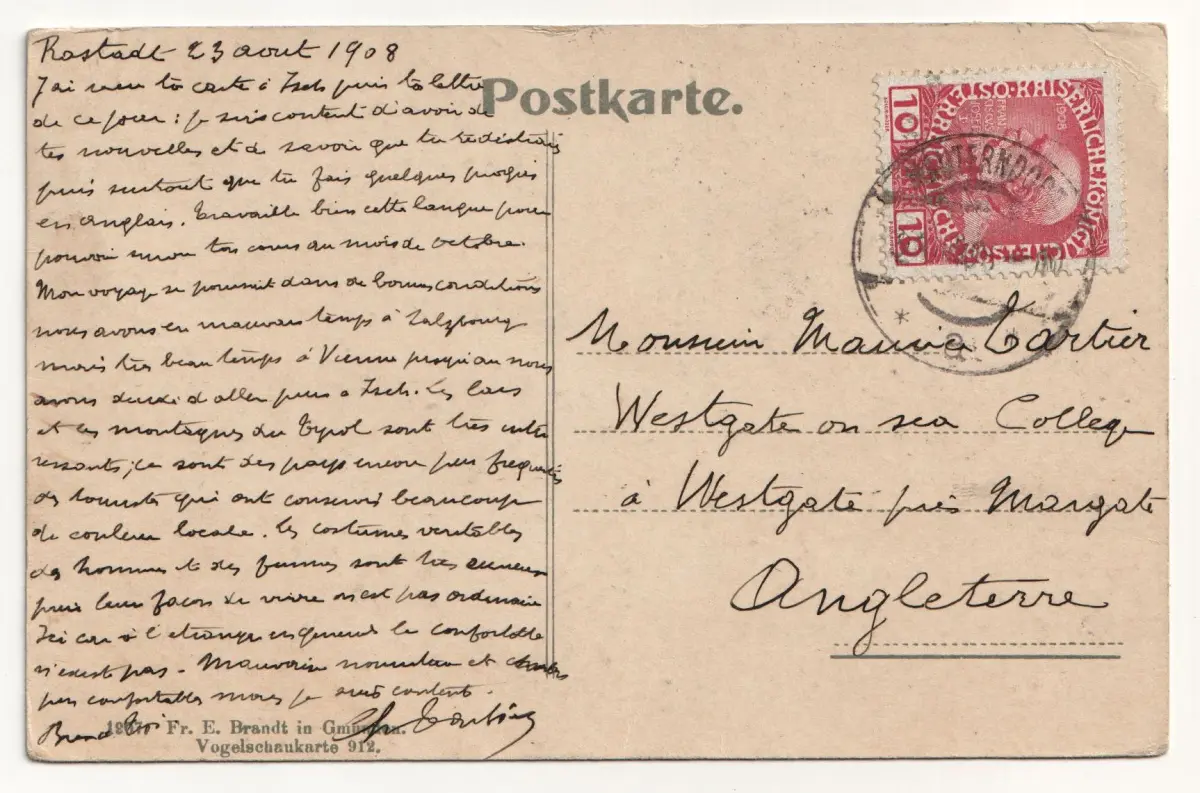 Rastadt 23 aout 1908
J'ai reçu ta carte à Isch puis ta lettre
de ce jour : je suis content d'avoir de
tes nouvelles et de savoir que tu te
puis surtout que tu fais quelques progrès
en anglais. Travaille bien cette langue pour
pouvoir suivre ton cours au mois de octobre.
Mon voyage se poursuit dans de bonnes conditions
nous avons eu mauvais temps à Salzbourg
mais très beau temps à Vienne jusqu'au nous
avons d'aller puis à Isch. Les lacs
et les montagnes du Tyrol sont très inté
ressants ; ce sont des pays encore peu fréquentés
des touristes qui ont conservé beaucoup
de couleur locale. Les costumes veritables
des hommes et des femmes sont très curieux
puis leur façon de vivre n'est pas ordinaire
Ici car à l'etranger en general le confortable
n'existe pas. Mauvaise nourriture et
peu confortables mais je suis content.
Postkarte.
1907. Fr. E. Brandt in Gmunden.
Vogelschaukarte 912.
KAISERLICHE KÖNIGLICHE ÖSTERREICHISCHE
1908
10
10
a
Monsieur Maurice Cartier
Westgate on sea College
à Westgate près Margate
Angleterre